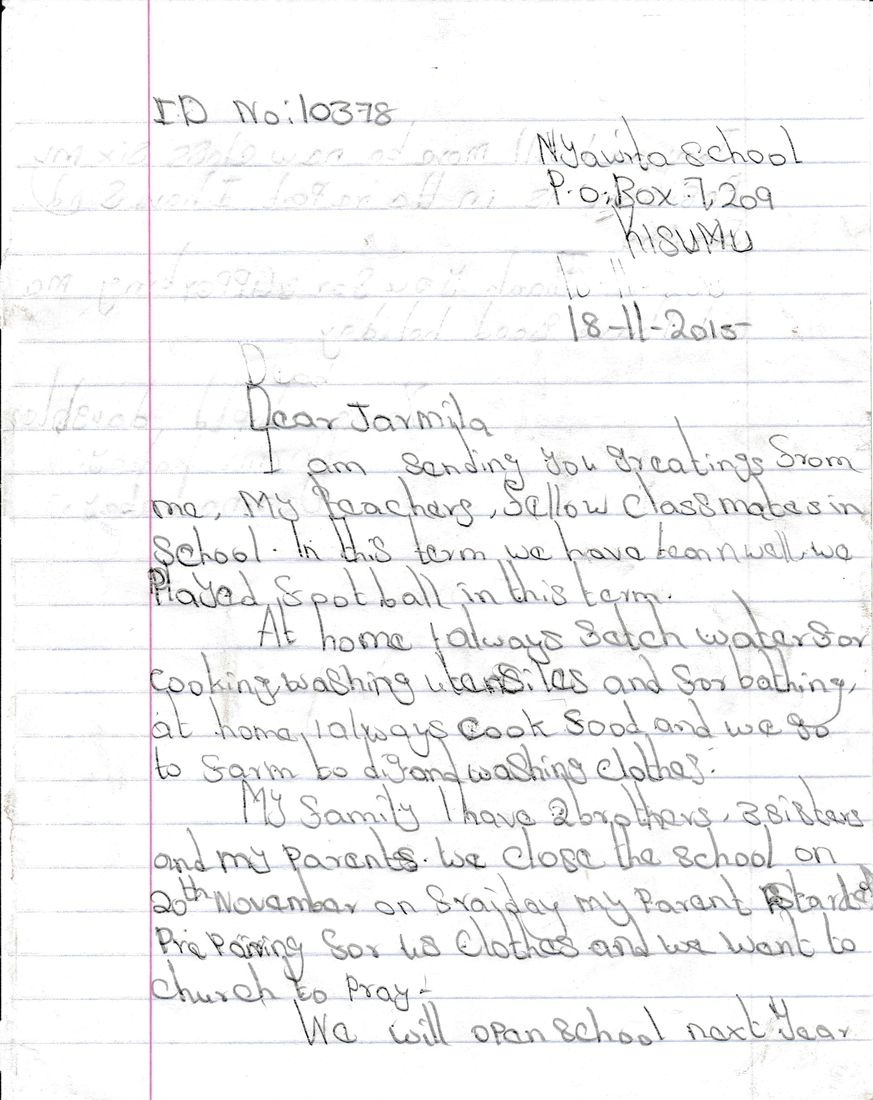 ID No: 10378
Nyawita School
P.O. Box 7,209
KISUMU
18-11-2015
Dear
Dear Jarmila
I am sending you greatings from
me, My teachers, fellow classmates in
School. In this term we have leann well, we
Played football in this term.
At home I always fatch water for
cooking, washing utensiles and for bathing,
at home, I always cook food, and we go
to farm to dig and washing clothes.
My family I have 2 brothers, 3 sisters
and my parents. We close the school on
20th November on fraiday my Parent Started
Prepairing for us Clothes and we want to
church to Pray.
We will open school next Year